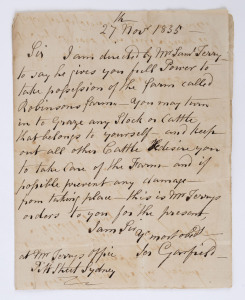 27th Novr 1835
Sir I am directed by Mr Saml Terry
to say he gives you full Power to
take possession of the farm called
Robinsons farm – You may turn
in to Graze any Stock or Cattle
that belongs to yourself and keep
out all other Cattle desires you
to take Care of the Farm and if
possible prevent any damage –
from taking place – this is Mr Terrys
orders to you for the present
I am Sir
Yr most obdt
at Mr Terrys Office Jos Garfield
Pitt Street Sydney